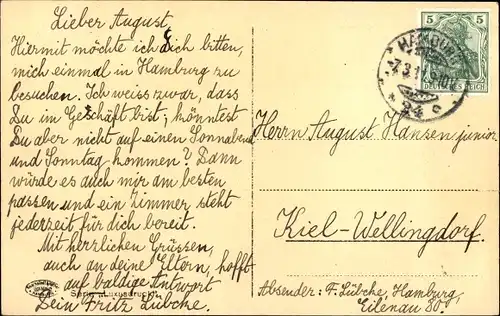 Lieber August
Hiermit möchte ich dich bitten,
mich einmal in Hamburg zu
besuchen. Ich weiss zwar, dass
Du in Geschäft bist; könntest
Du aber nicht auf einen Sonnabend
und Sonntag kommen? Dann
würde es auch mir am besten
passen und ein Zimmer steht
jederzeit für dich bereit.
Mit herzlichen Grüssen,
auch an deine Eltern, hofft
auf baldige Antwort
Dein Fritz Lübcke.
Serie „Luxusdruck“
5 5
DEUTSCHES REICH
HAMBURG
24
Herrn August Hansen junior.
Kiel-Wellingdorf.
Absender: F. Lübcke, Hamburg,
Eilenau 30.